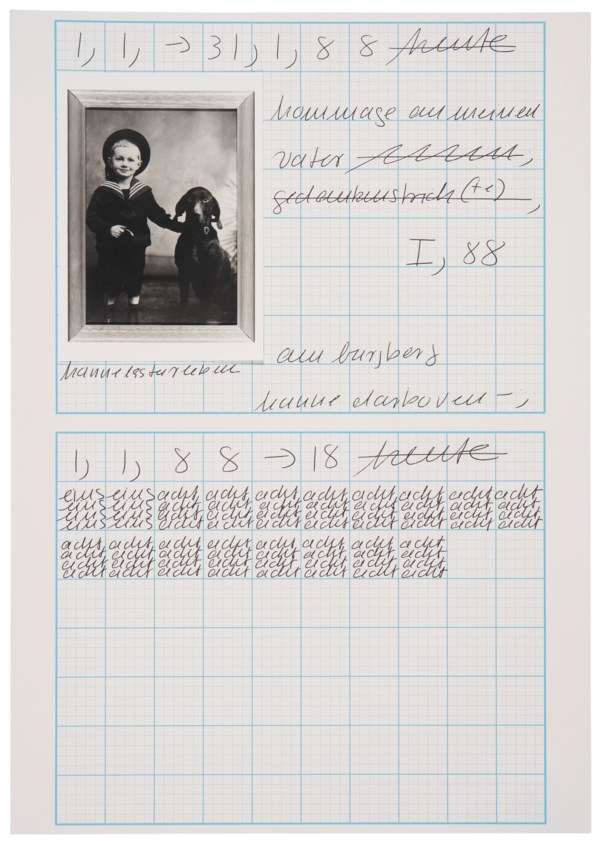 1, 1, → 31, 1, 8 8 heute
hommage an meinen
vater ,
gedankenstrich (+e) ,
I, 88
am burgberg
hanne darboven –,
1, 1, 8 8 → 18 heute
eins eins acht, acht, acht, acht, acht, acht, acht, acht
eins eins acht acht acht acht acht acht acht acht
eins eins acht acht acht acht acht acht acht acht
eins eins acht acht acht acht acht acht acht acht
acht, acht, acht, acht, acht, acht, acht, acht
acht acht acht acht acht acht acht acht
acht acht acht acht acht acht acht acht
acht acht acht acht acht acht acht acht